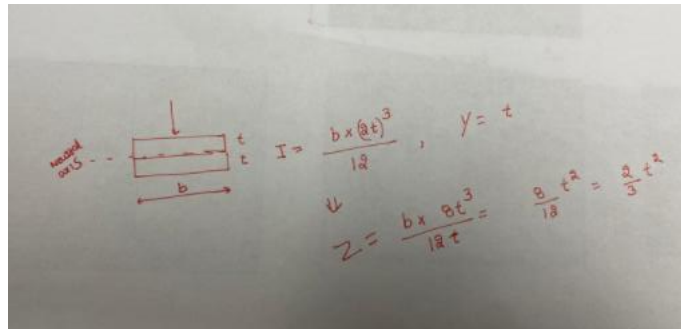 neutral
axis - -
t
t
b
I = b×(2t)³/12 , y = t
⇓
Z = b× 8t³/12t = 8/12 t² = 2/3 t²